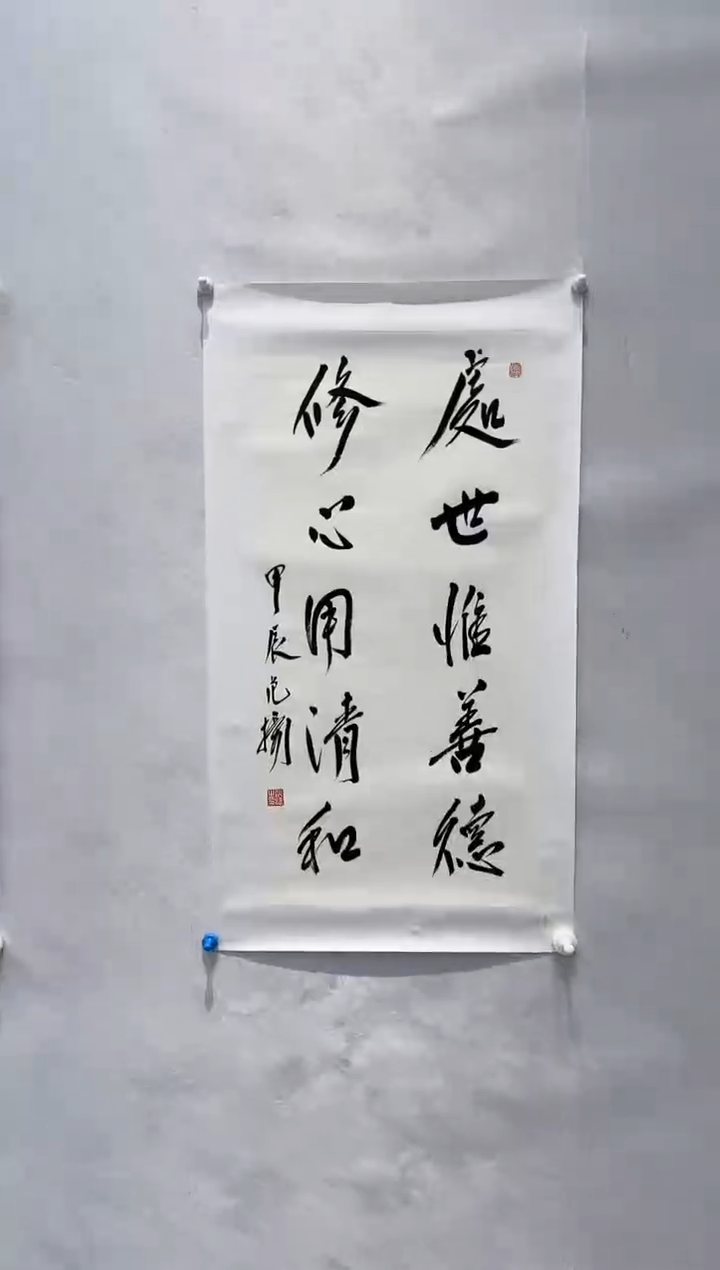 處世惟善德
修心用清和
甲辰范